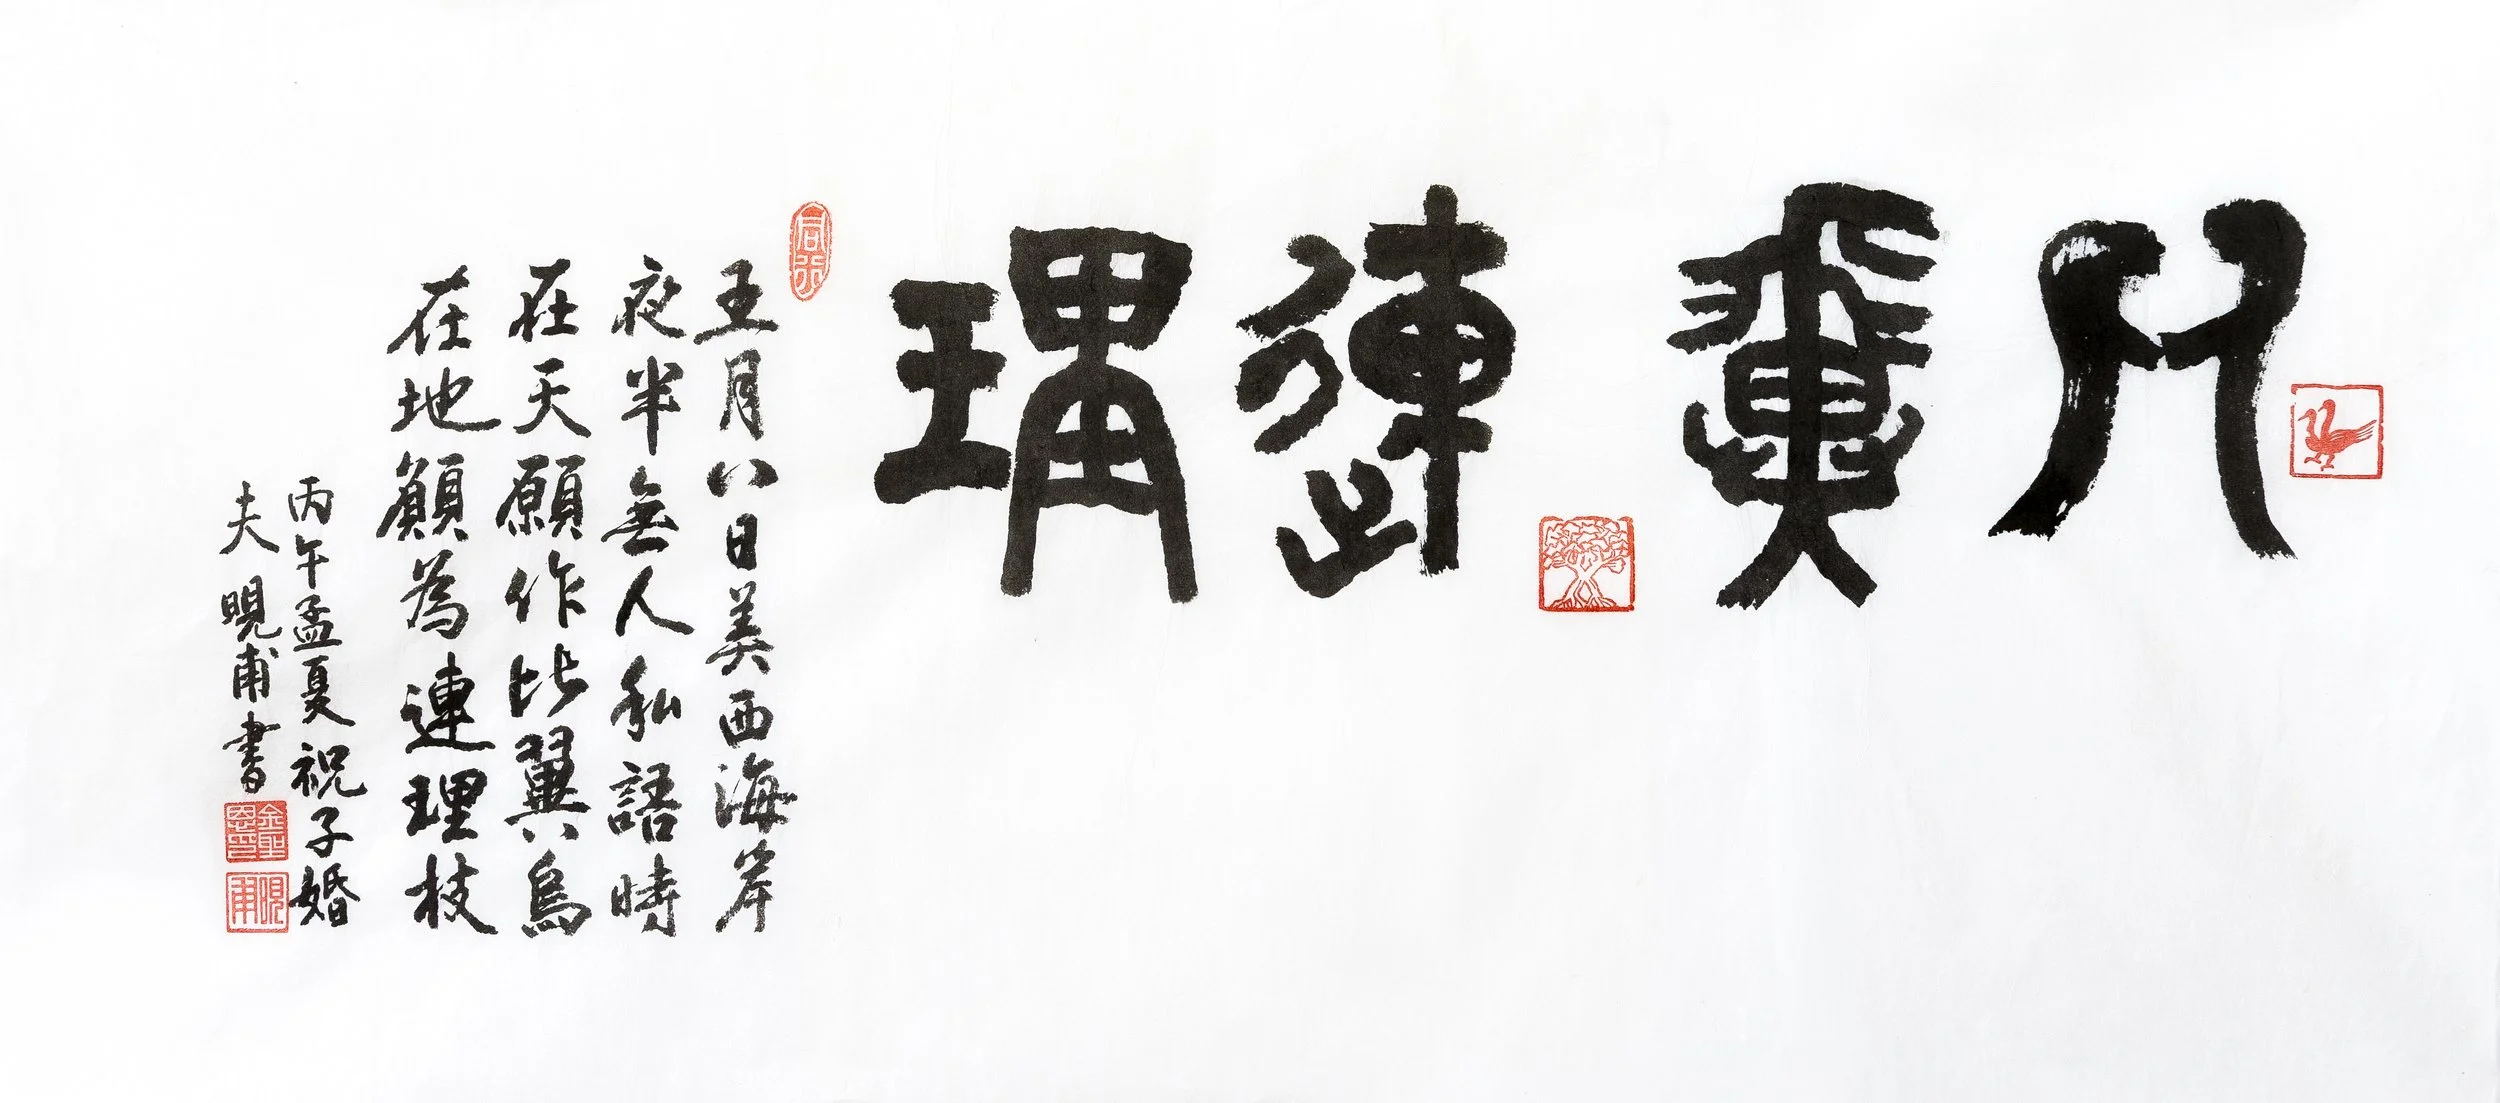 比翼連理
五月八日美西海岸
夜半無人私語時
在天願作比翼鳥
在地願為連理枝
丙午孟夏祝子婚
夫晛甫書
金聖恩印
晛甫